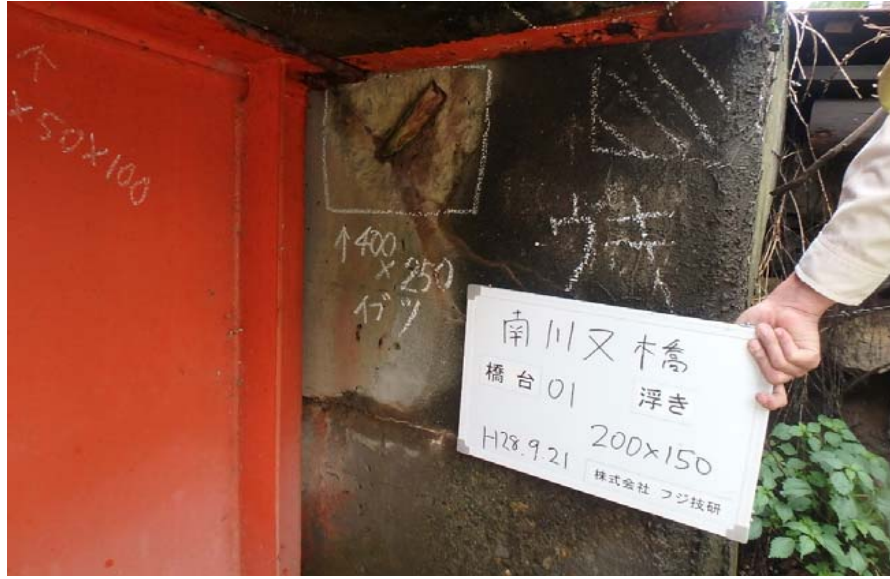 ×50×100
↑400
×250
イブツ
ウキ
南川又橋
橋台 01 浮き
H28.9.21 200×150
株式会社 フジ技研